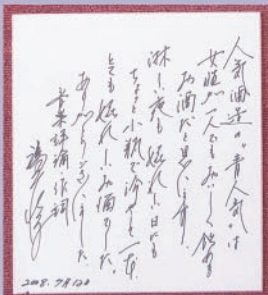 人気酒造の“青人気”は
女性が一人でもおいしく飲める
お酒だと思います。
淋しい夜も嬉しい日にも
ちょっと小瓶で冷やして一本、
とても嬉しいお酒でした。
ありがとうございました。
音楽評論・作詞
2008.9月12日